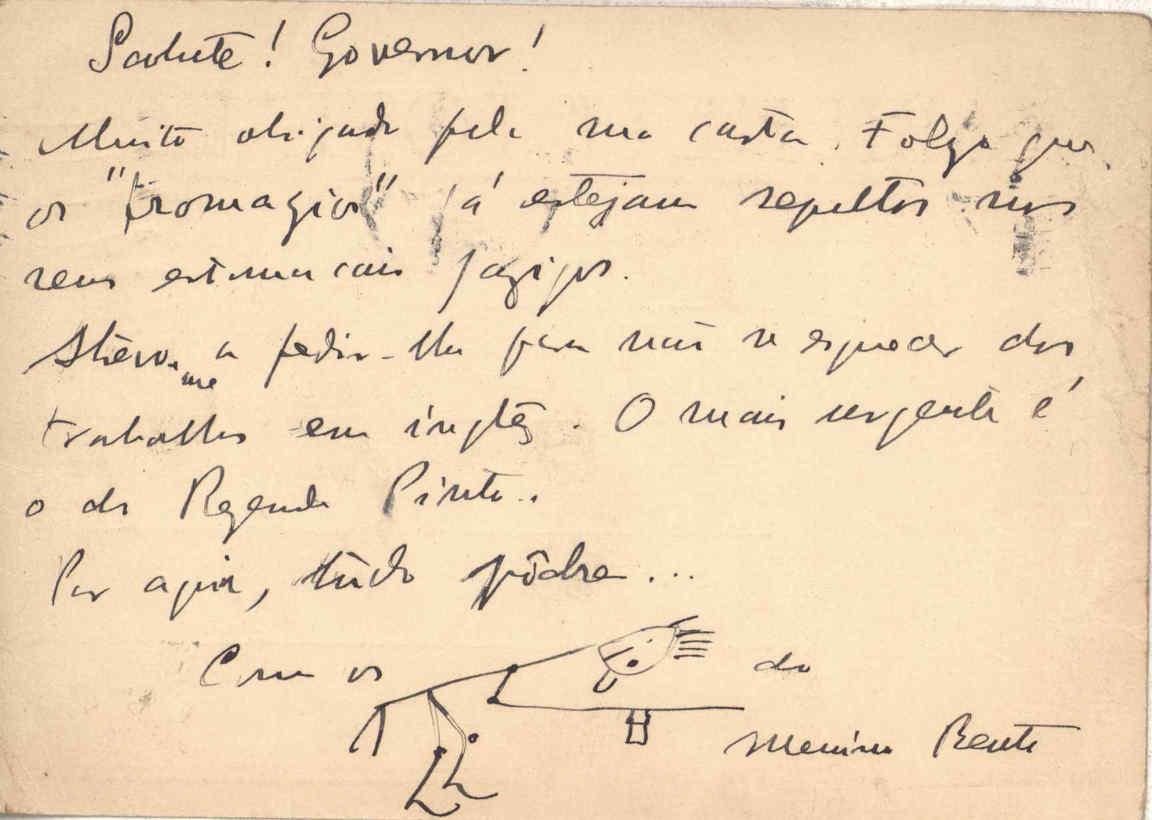 Salute! Governor!
Muito obrigado pela sua carta. Folgo que
os "fromagios" já estejam sepultos nos
seus estomacais jazigos.
Atrevo-me a pedir-lhe para não se esquecer dos
trabalhos em inglês. O mais urgente é
o do Rezende Pinto.
Por aqui, tudo pôdre...
Com os do
Menino Bento